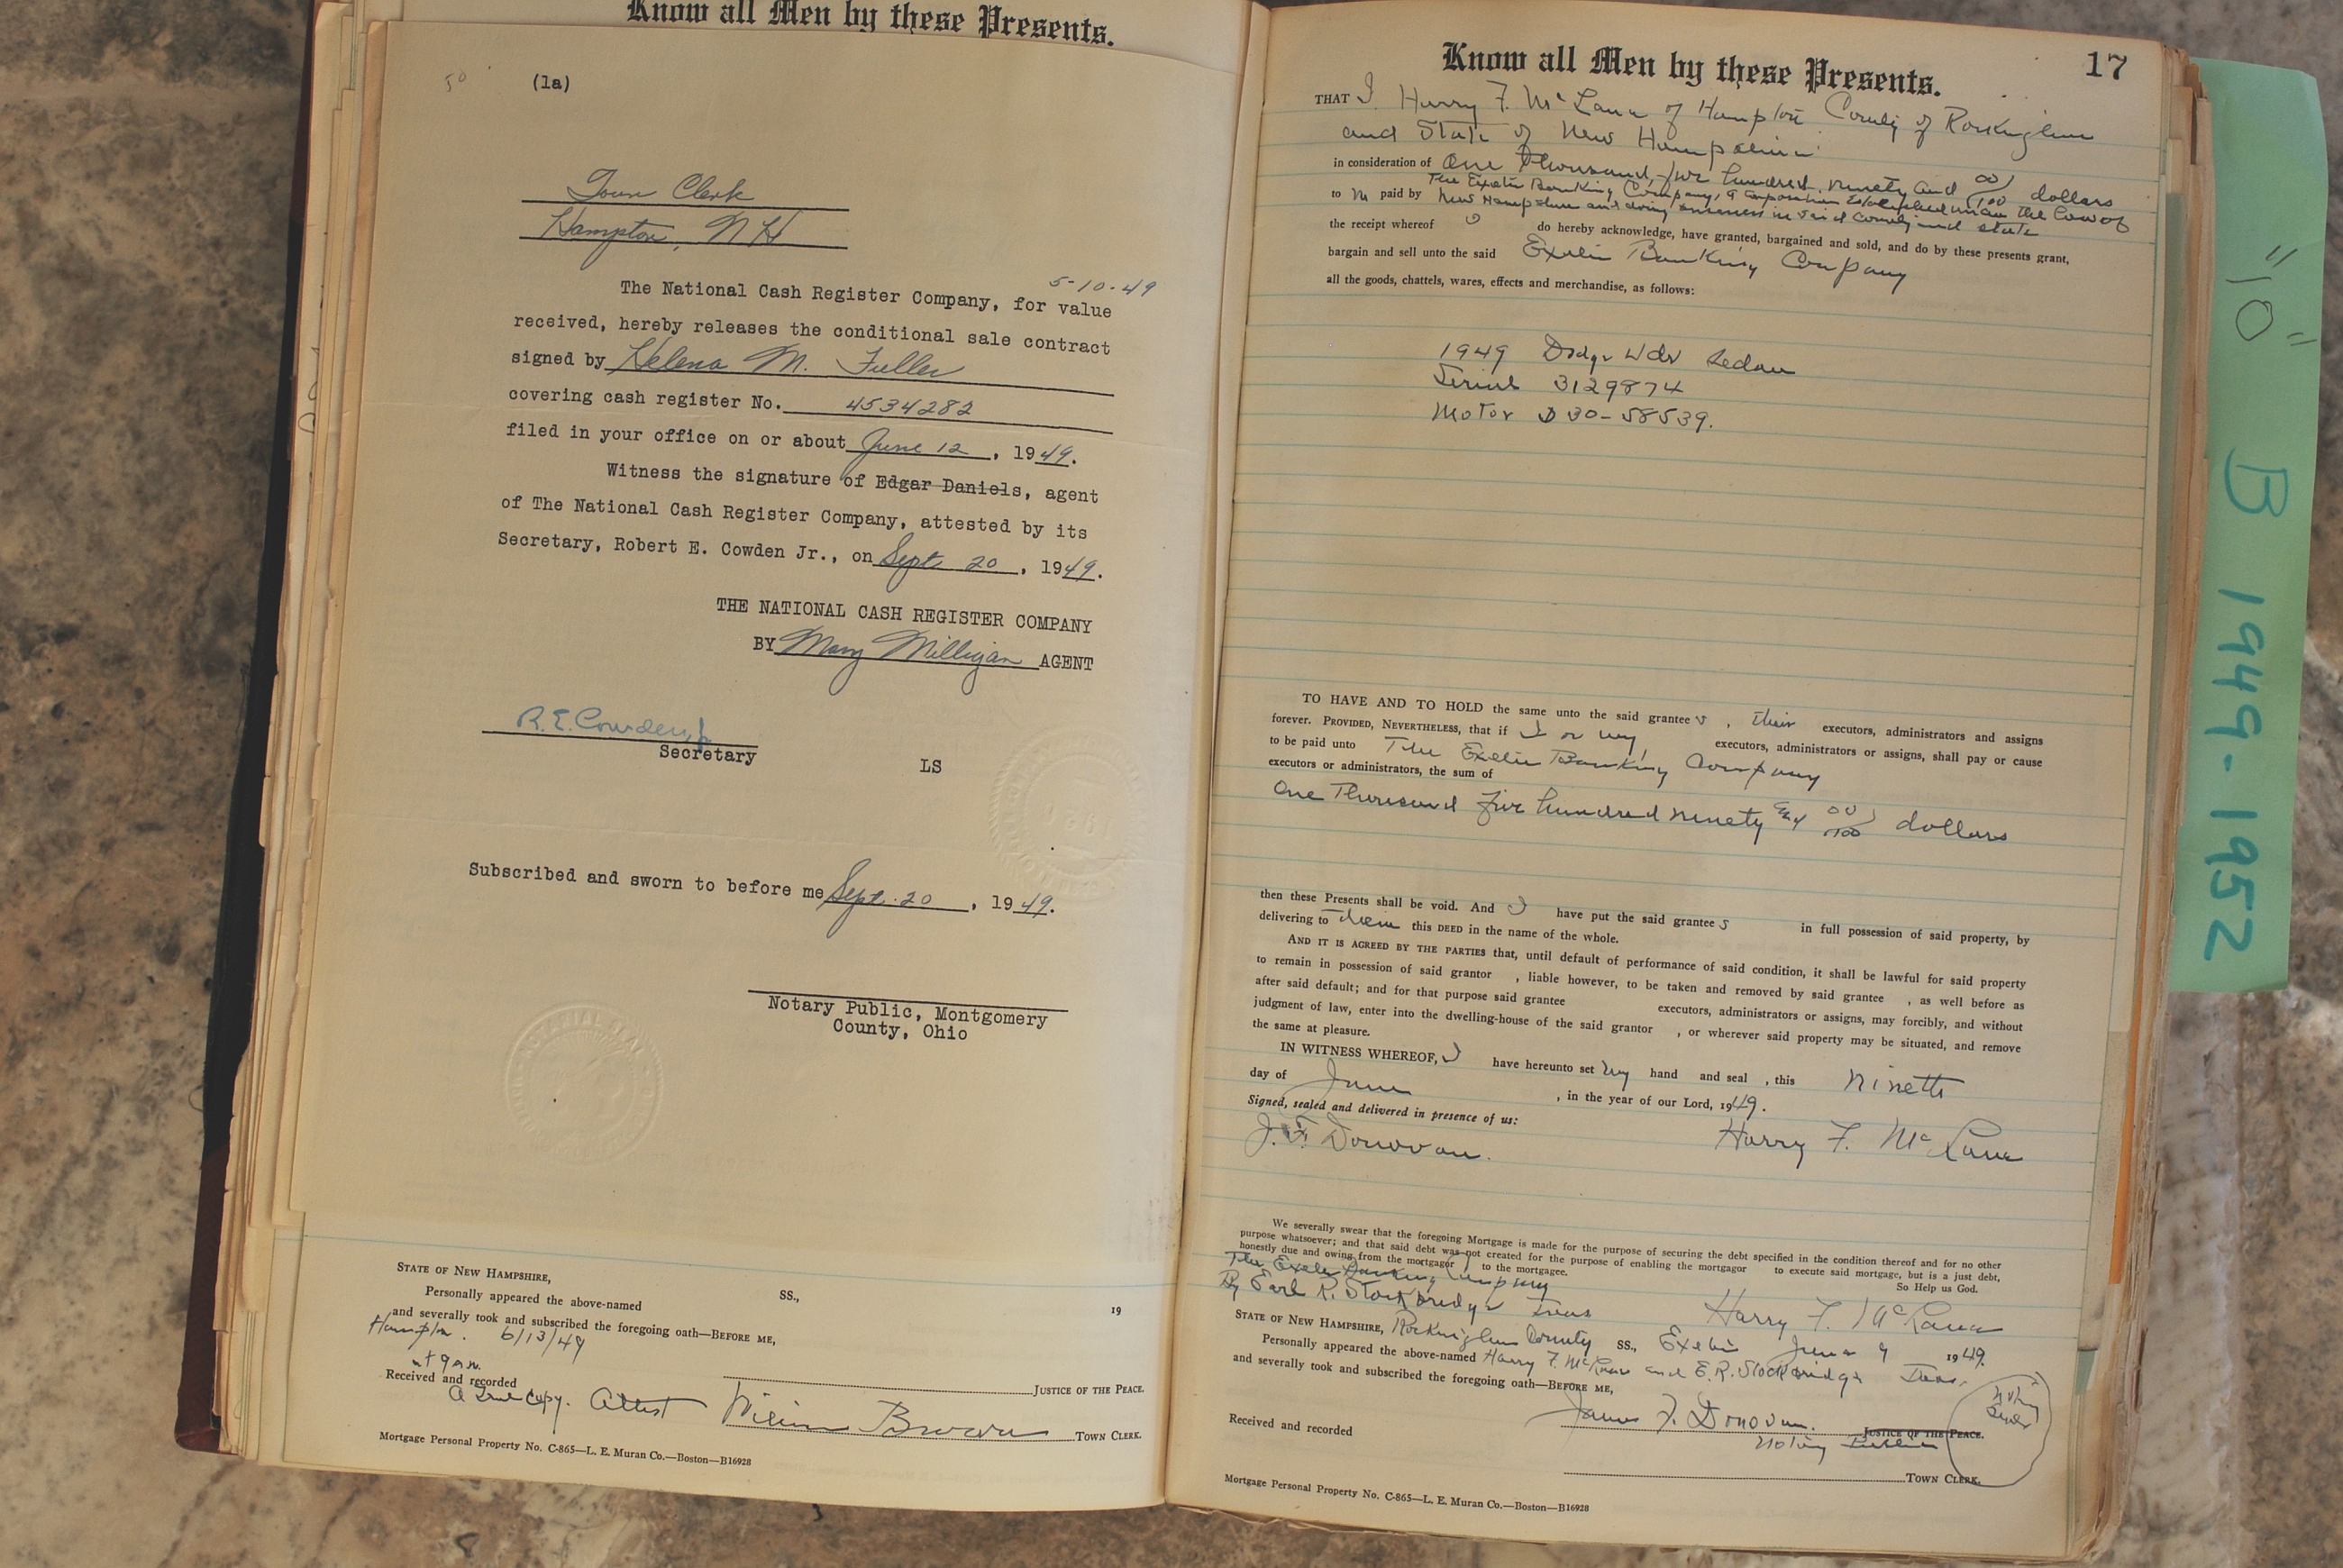 Know all Men by these Presents.
50
(1a)
Town Clerk
Hampton, N H
5-10-49
The National Cash Register Company, for value
received, hereby releases the conditional sale contract
signed by Helena M. Fuller
covering cash register No. 4534282
filed in your office on or about June 12, 1949.
Witness the signature of Edgar Daniels, agent
of The National Cash Register Company, attested by its
Secretary, Robert E. Cowden Jr., on Sept. 20, 1949.
THE NATIONAL CASH REGISTER COMPANY
BY Mary Milligan AGENT
R.E. Cowden, Jr
Secretary
LS
Subscribed and sworn to before me Sept. 20, 1949.
Notary Public, Montgomery
County, Ohio
NOTARIAL SEAL
STATE OF NEW HAMPSHIRE,
SS., 19
Personally appeared the above-named
and severally took and subscribed the foregoing oath—BEFORE ME,
Hampton. 6/13/49
at 9 a.m.
JUSTICE OF THE PEACE.
Received and recorded
A True Copy. Attest William Brown TOWN CLERK.
Mortgage Personal Property No. C-865—L. E. Muran Co.—Boston—B16928
Know all Men by these Presents.
17
THAT I Harry F. McLane of Hampton County of Rockingham
and State of New Hampshire
in consideration of One Thousand, five hundred, ninety and 00/100 dollars
to m paid by The Exeter Banking Company, a corporation established under the law of
New Hampshire and doing business in said County and state
the receipt whereof I do hereby acknowledge, have granted, bargained and sold, and do by these presents grant,
bargain and sell unto the said Exeter Banking Company
all the goods, chattels, wares, effects and merchandise, as follows:
1949 Dodge 4dr Sedan
Serial 3129874
Motor D 30-58539.
TO HAVE AND TO HOLD the same unto the said grantee s, their executors, administrators and assigns
forever. PROVIDED, NEVERTHELESS, that if I or my executors, administrators or assigns, shall pay or cause
to be paid unto The Exeter Banking Company
executors or administrators, the sum of
One Thousand five hundred ninety and 00/100 dollars
then these Presents shall be void. And I have put the said grantee s in full possession of said property, by
delivering to them this DEED in the name of the whole.
AND IT IS AGREED BY THE PARTIES that, until default of performance of said condition, it shall be lawful for said property
to remain in possession of said grantor , liable however, to be taken and removed by said grantee , as well before as
after said default; and for that purpose said grantee executors, administrators or assigns, may forcibly, and without
judgment of law, enter into the dwelling-house of the said grantor , or wherever said property may be situated, and remove
the same at pleasure.
IN WITNESS WHEREOF, I have hereunto set my hand and seal , this Nineth
day of June , in the year of our Lord, 1949.
Signed, sealed and delivered in presence of us:
J. F. Donovan. Harry F. McLane
We severally swear that the foregoing Mortgage is made for the purpose of securing the debt specified in the condition thereof and for no other
purpose whatsoever; and that said debt was not created for the purpose of enabling the mortgagor to execute said mortgage, but is a just debt,
honestly due and owing from the mortgagor to the mortgagee. So Help us God.
The Exeter Banking Company
By Earl R. Stockbridge Treas Harry F. McLane
STATE OF NEW HAMPSHIRE, Rockingham County SS., Exeter June 9 1949.
Personally appeared the above-named Harry F. McLane and E.R. Stockbridge Treas.
and severally took and subscribed the foregoing oath—BEFORE ME,
James F. Donovan. JUSTICE OF THE PEACE.
Notary Public
Notary
Seal
Received and recorded
TOWN CLERK.
Mortgage Personal Property No. C-865—L. E. Muran Co.—Boston—B16928
"10" B 1949-1952